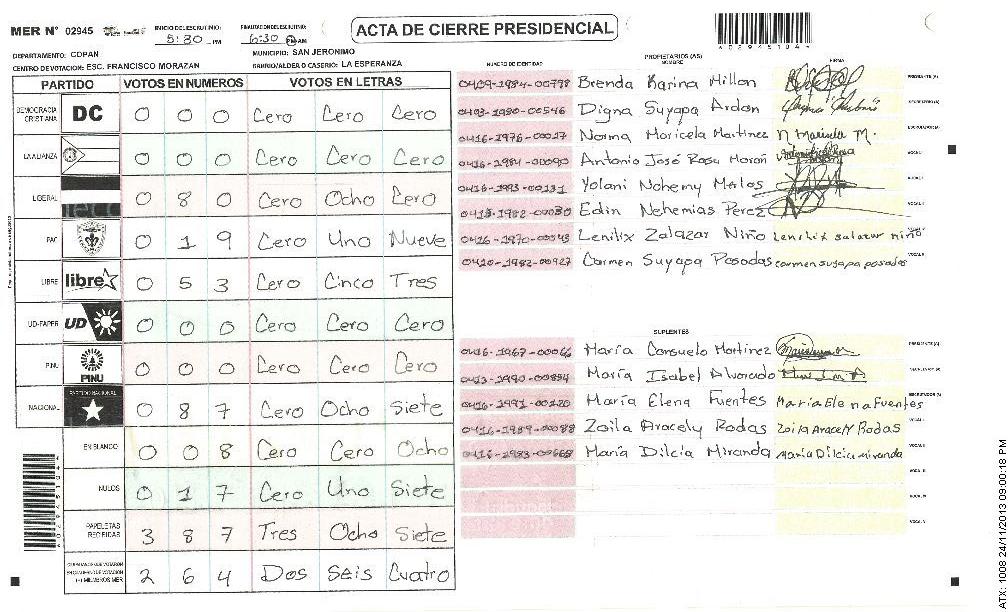 MER N° 02945
INICIO DEL ESCRUTINIO:
5:30 PM
FINALIZACION DEL ESCRUTINIO:
6:30 PM AM
ACTA DE CIERRE PRESIDENCIAL
DEPARTAMENTO: COPAN
MUNICIPIO: SAN JERONIMO
CENTRO DE VOTACION: ESC. FRANCISCO MORAZAN
BARRIO/ALDEA O CASERIO: LA ESPERANZA
PARTIDO VOTOS EN NUMEROS VOTOS EN LETRAS
DEMOCRACIA CRISTIANA DC 0 0 0 Cero Cero Cero
LA ALIANZA 0 0 0 Cero Cero Cero
LIBERAL 0 8 0 Cero Ocho Cero
PAC 0 1 9 Cero Uno Nueve
LIBRE libre 0 5 3 Cero Cinco Tres
UD-FAPER UD 0 0 0 Cero Cero Cero
PINU PINU 0 0 0 Cero Cero Cero
NACIONAL PARTIDO NACIONAL 0 8 7 Cero Ocho Siete
EN BLANCO 0 0 8 Cero Cero Ocho
NULOS 0 1 7 Cero Uno Siete
PAPELETAS RECIBIDAS 3 8 7 Tres Ocho Siete
2 6 4 Dos Seis Cuatro
NUMERO DE IDENTIDAD
PROPIETARIOS (AS)
NOMBRE
FIRMA
Brenda Karina Millon
PRESIDENTE (A)
0403-1980-00546 Digna Suyapa Ardon
SECRETARIO (A)
0416-1976-00017 Norma Maricela Martinez n Maricela M.
ESCRUTADOR (A)
0416-1984-00090 Antonio José Rosa Morán
VOCAL I
0416-1993-00131 Yolani Nohemy Melos
VOCAL II
0413-1982-00030 Edin Nehemias Perez
0416-1970-00043 Lenilix Zalazar Niño Lenilix salazar niño
Carmen Suyapa Posadas carmen suyapa posadas
VOCAL V
SUPLENTES
0416-1967-00066 María Consuelo Martinez
PRESIDENTE (A)
0413-1990-00854 María Isabel Alvarado
SECRETARIO (A)
0416-1991-00120 María Elena Fuentes María Elena Fuentes
ESCRUTADOR (A)
0416-1989-00088 Zoila Aracely Rodas Zoila Aracely Rodas
VOCAL I
0416-1983-00668 María Dilcia Miranda María Dilcia miranda
VOCAL II
VOCAL III
VOCAL IV
VOCAL V
ATX: 1008 24/11/2013 09:00:18 PM